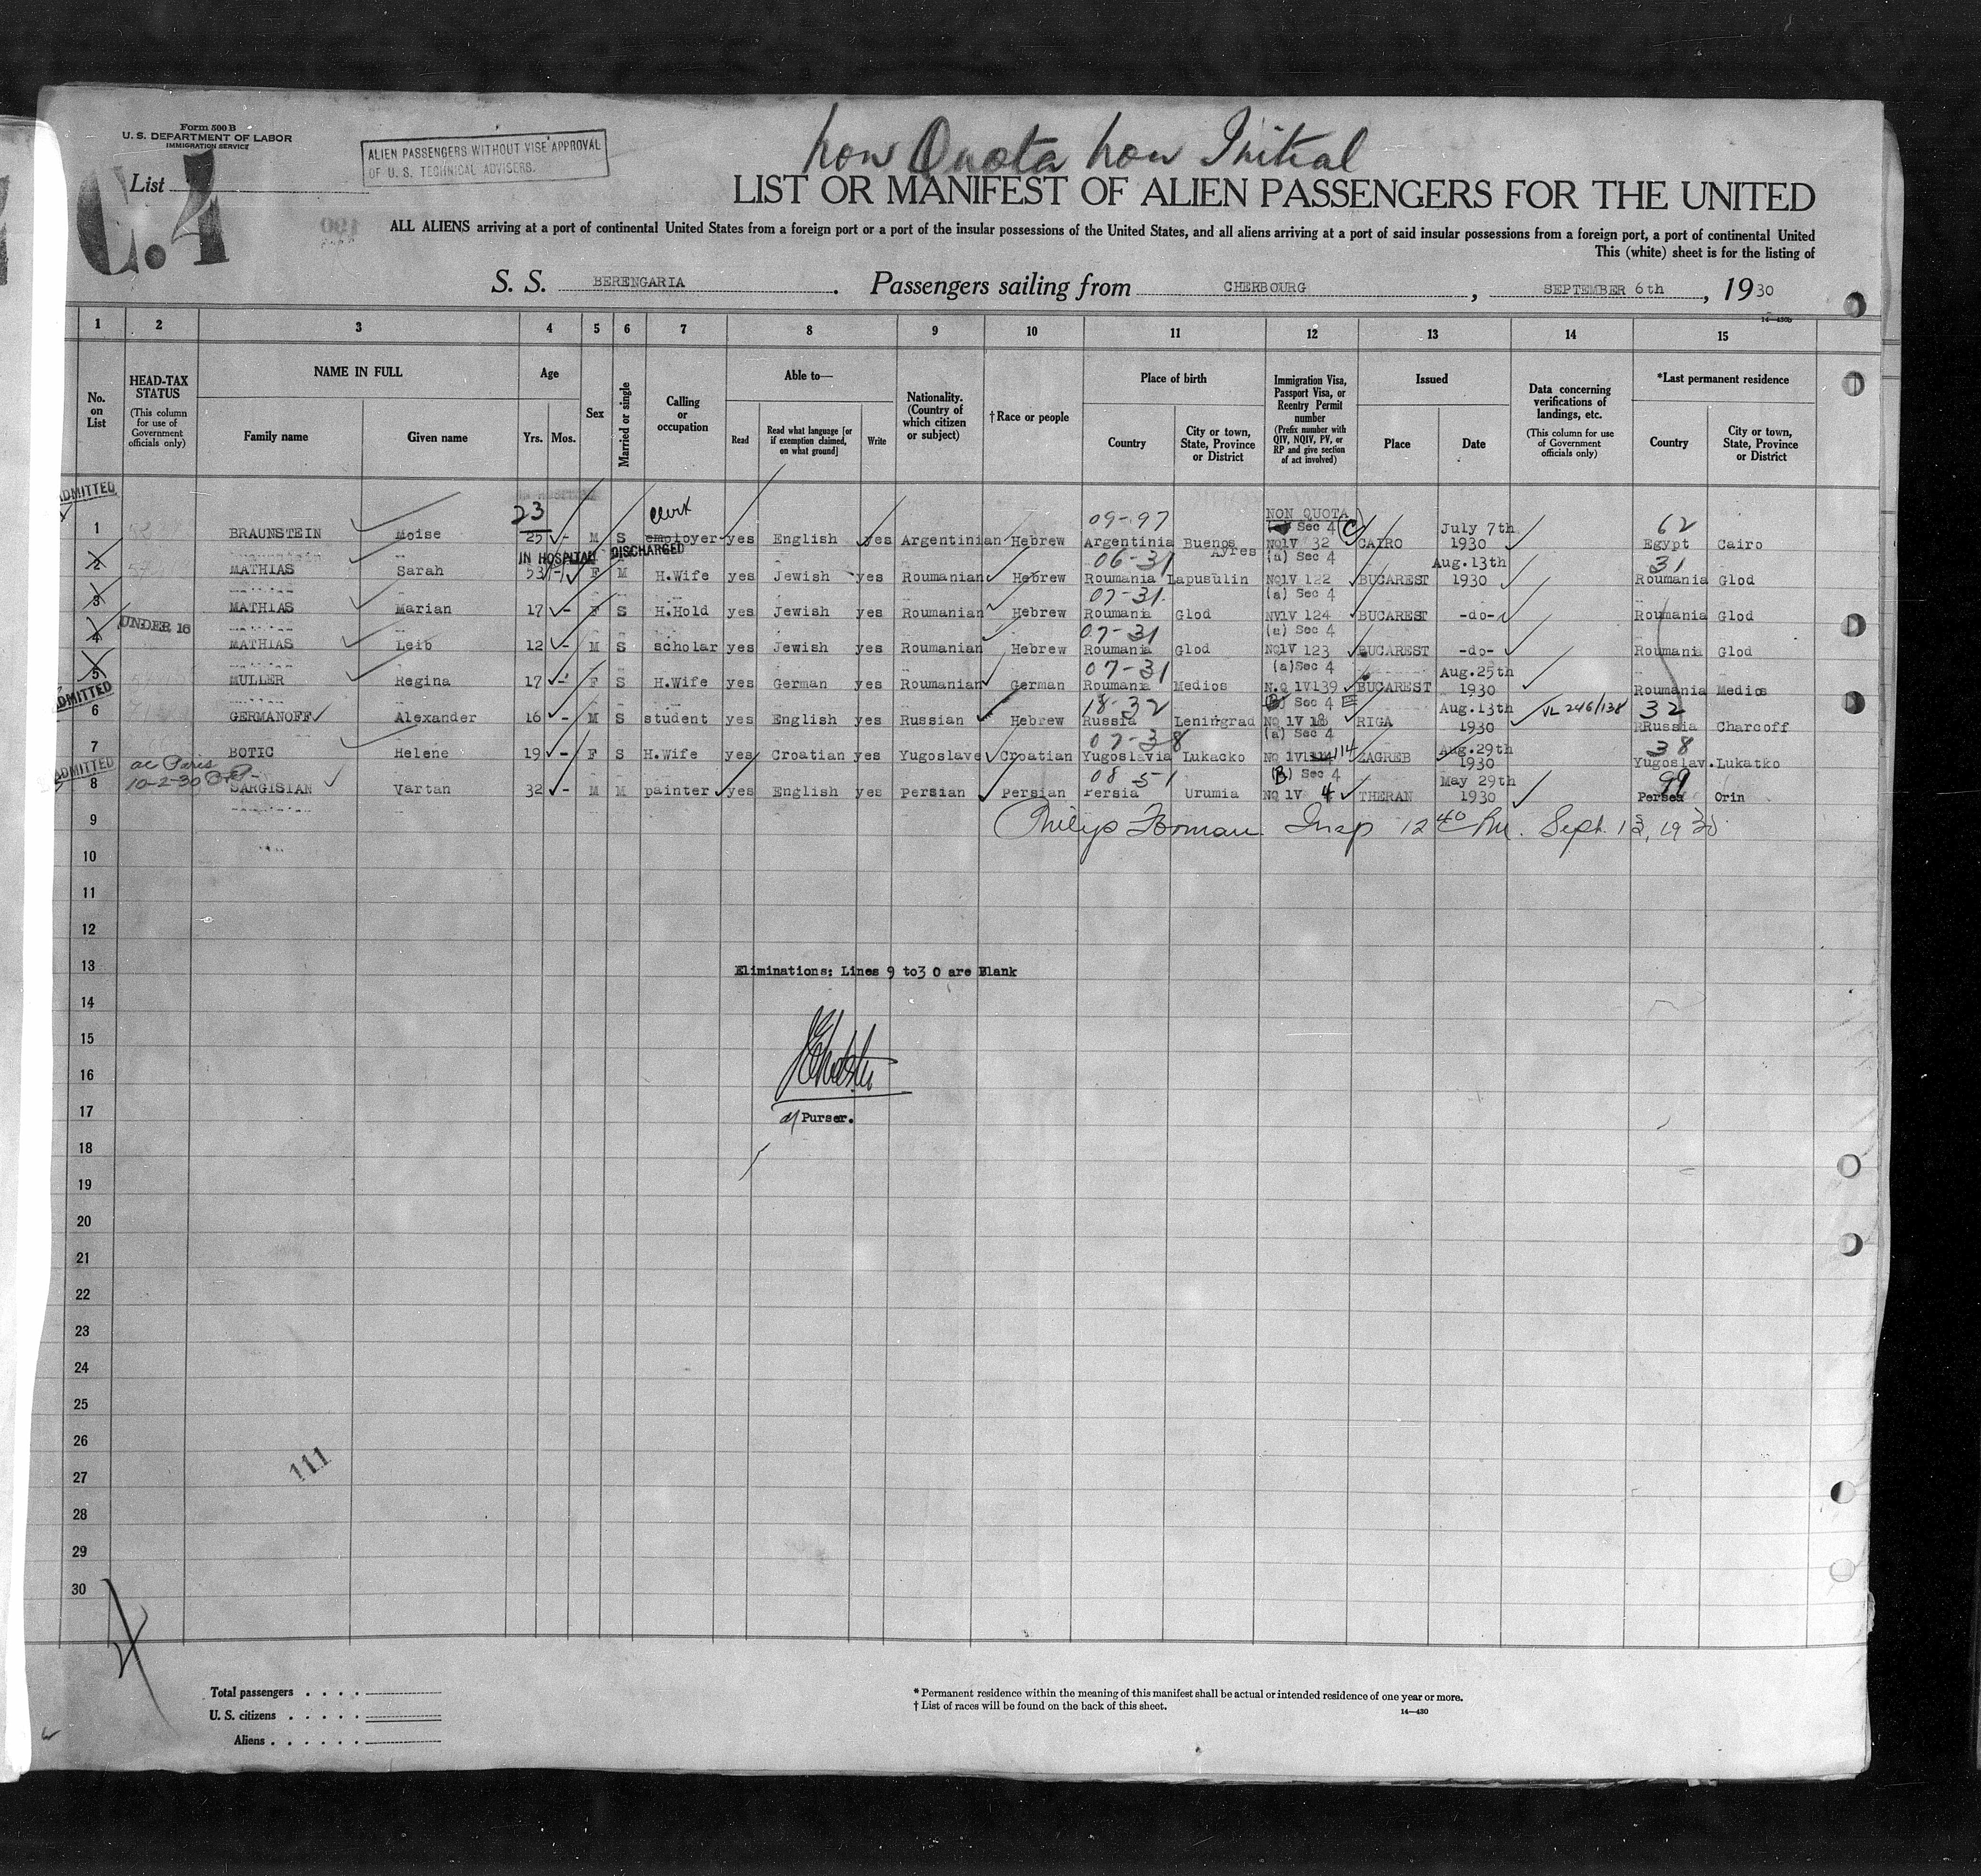 Form 500 B
U. S. DEPARTMENT OF LABOR
IMMIGRATION SERVICE
ALIEN PASSENGERS WITHOUT VISE APPROVAL
OF U. S. TECHNICAL ADVISERS.
non Quota non Initial
List
C.4
LIST OR MANIFEST OF ALIEN PASSENGERS FOR THE UNITED
ALL ALIENS arriving at a port of continental United States from a foreign port or a port of the insular possessions of the United States, and all aliens arriving at a port of said insular possessions from a foreign port, a port of continental United
This (white) sheet is for the listing of
S. S. BERENGARIA. Passengers sailing from CHERBOURG, SEPTEMBER 6th, 1930
14—430b
1 2 3 4 5 6 7 8 9 10 11 12 13 14 15
No. on List
HEAD-TAX STATUS (This column for use of Government officials only)
NAME IN FULL
Family name Given name
Age
Yrs. Mos.
Sex
Married or single
Calling or occupation
Able to—
Read
Read what language [or if exemption claimed, on what ground]
Write
Nationality. (Country of which citizen or subject)
†Race or people
Place of birth
Country
City or town, State, Province or District
Immigration Visa, Passport Visa, or Reentry Permit number (Prefix number with QIV, NQIV, PV, or RP and give section of act involved)
Issued
Place Date
Data concerning verifications of landings, etc. (This column for use of Government officials only)
*Last permanent residence
Country
City or town, State, Province or District
ADMITTED
23 clerk 09-97 NON QUOTA Sec 4 (C) July 7th 62
1 BRAUNSTEIN Moise 25 - M S employer yes English yes Argentinian Hebrew Argentinia Buenos Ayres NQ1V 32 CAIRO 1930 Egypt Cairo
IN HOSPITAL DISCHARGED 06-31 (a) Sec 4 Aug.13th 31
2 MATHIAS Sarah 53 - F M H.Wife yes Jewish yes Roumanian Hebrew Roumania Lapusulin NQ1V 122 BUCAREST 1930 Roumania Glod
07-31 (a) Sec 4
3 MATHIAS Marian 17 - F S H.Hold yes Jewish yes Roumanian Hebrew Roumania Glod NV1V 124 BUCAREST -do- Roumania Glod
UNDER 16 07-31 (a) Sec 4
4 MATHIAS Leib 12 - M S scholar yes Jewish yes Roumanian Hebrew Roumania Glod NQ1V 123 BUCAREST -do- Roumania Glod
07-31 (a)Sec 4 Aug.25th
5 MULLER Regina 17 - F S H.Wife yes German yes Roumanian German Roumania Medios N.Q 1V139 BUCAREST 1930 Roumania Medios
ADMITTED 18-32 Sec 4 Aug.13th VL 246/138 32
6 GERMANOFF Alexander 16 - M S student yes English yes Russian Hebrew Russia Leningrad NQ 1V 18 RIGA 1930 RRussia Charcoff
07-38 (a) Sec 4 Aug.29th 38
7 BOTIC Helene 19 - F S H.Wife yes Croatian yes Yugoslave Croatian Yugoslavia Lukacko NQ 1V 114 ZAGREB 1930 Yugoslav. Lukatko
ADMITTED ac Paris 10-2-30 08 51 (B) Sec 4 May 29th 99
8 SARGISIAN Vartan 32 - M M painter yes English yes Persian Persian Persia Urumia NQ 1V 4 THERAN 1930 Persea Orin
9 Philip Forman Insp 12 40 PM. Sept. 12, 1930
10
11
12
13 Eliminations: Lines 9 to30 are Blank
14
15
16
17 Purser.
18
19
20
21
22
23
24
25
26
27 111
28
29
30
Total passengers
U. S. citizens
Aliens
* Permanent residence within the meaning of this manifest shall be actual or intended residence of one year or more.
† List of races will be found on the back of this sheet.
14—430